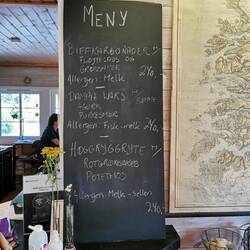 MENY
BIFFKARBONADER M/
FLØTESAUS OG
GRØNNSAKER
Allergen-Melk 240,-
LAKS M/
PUREMOSE
Allergen-Fisk-melk 240,-
HØGGRYGGRYTE M/
ROTGRØNNSAKER
POTETMOS
Allergen-Melk-selleri
240,-